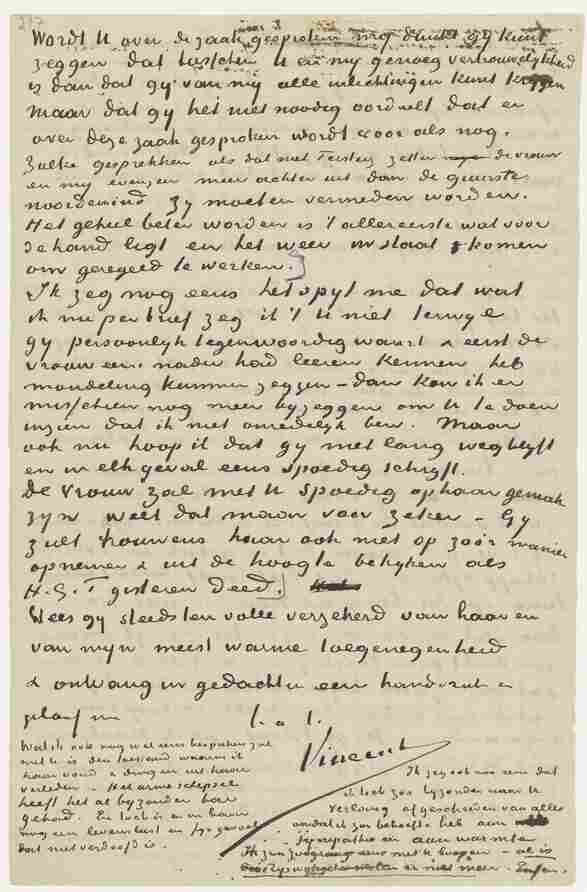 Wordt U over de zaak gesproken nog drukt gy kunt
zeggen dat tusschen U en my genoeg vertrouwelykheid
is dan dat gy van my alle inlichtingen kunt krygen
maar dat gy het niet noodig oordeelt dat er
over deze zaak gesproken wordt voor als nog.
Zulke gesprekken als dat met Tersteeg zetten de vrouw
en my evenzeer meer achter uit dan de
noodwind zy moeten vermeden worden.
Het geheel beter worden is 't allereerste wat voor
de hand ligt en het weer in staat komen
om geregeld te werken.]
Ik zeg nog eens het spyt me dat wat
ik nu per brief zeg ik 't U niet terwyl
gy persoonlyk tegenwoordig waart & eerst de
vrouw eens nader had leeren kennen heb
mondeling kunnen zeggen – dan kon ik er
misschien nog meer byzeggen om U te doen
inzien dat ik niet onredelyk ben. Maar
ook nu hoop ik dat gy niet lang wegblyft
en in elk geval eens spoedig schryft.
De vrouw zal met U spoedig op haar gemak
zyn weet dat maar voor zeker – Gy
zult trouwens haar ook niet op zoo'n manier
opnemen & uit de hoogte bekyken als
H.G.T gisteren deed.]
Wees gy steeds ten volle verzekerd van haar en
van myn meest warme toegenegenheid
& ontvang in gedachten een handdruk en
geloof me
t. à t.
Vincent
Wat ik ook nog wel eens bespreken zal
met U is den toestand waarin ik
haar vond & dingen uit haar
verleden – Het arme schepsel
heeft het al byzonder hard
gehad. En toch is er in haar
nog een levenslust en fyn gevoel
dat niet verdoofd is.
Ik zeg ook nog eens dat
ik toch zoo byzonder naar U
verlang afgescheiden van alles
omdat ik zoo behoefte heb aan
sympathie en aan warmte
Ik zou zoo graag eens met U loopen – al is
er niet meer. Enfin.